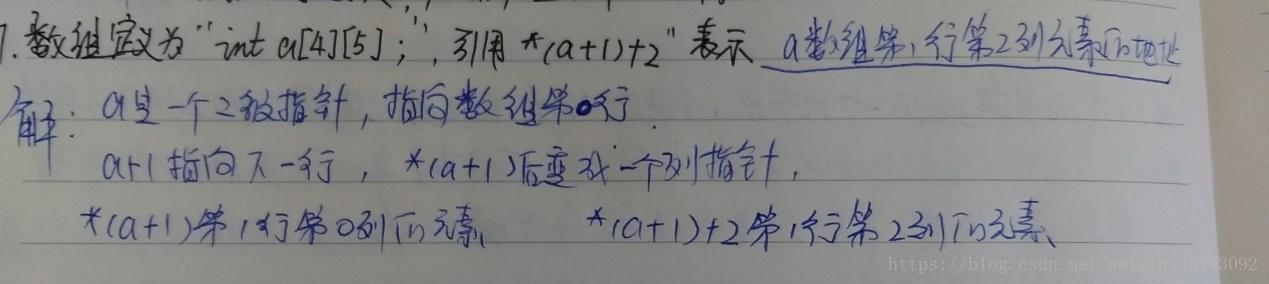 1.数组定义为"int a[4][5];",引用"*(a+1)+2"表示 a数组第1行第2列元素的地址
解:a是一个2级指针,指向数组第0行.
a+1指向下一行,*(a+1)后变成一个列指针,
*(a+1)第1行第0列的元素、 *(a+1)+2第1行第2列的元素、
https://blog.csdn.net/weixin_43283092